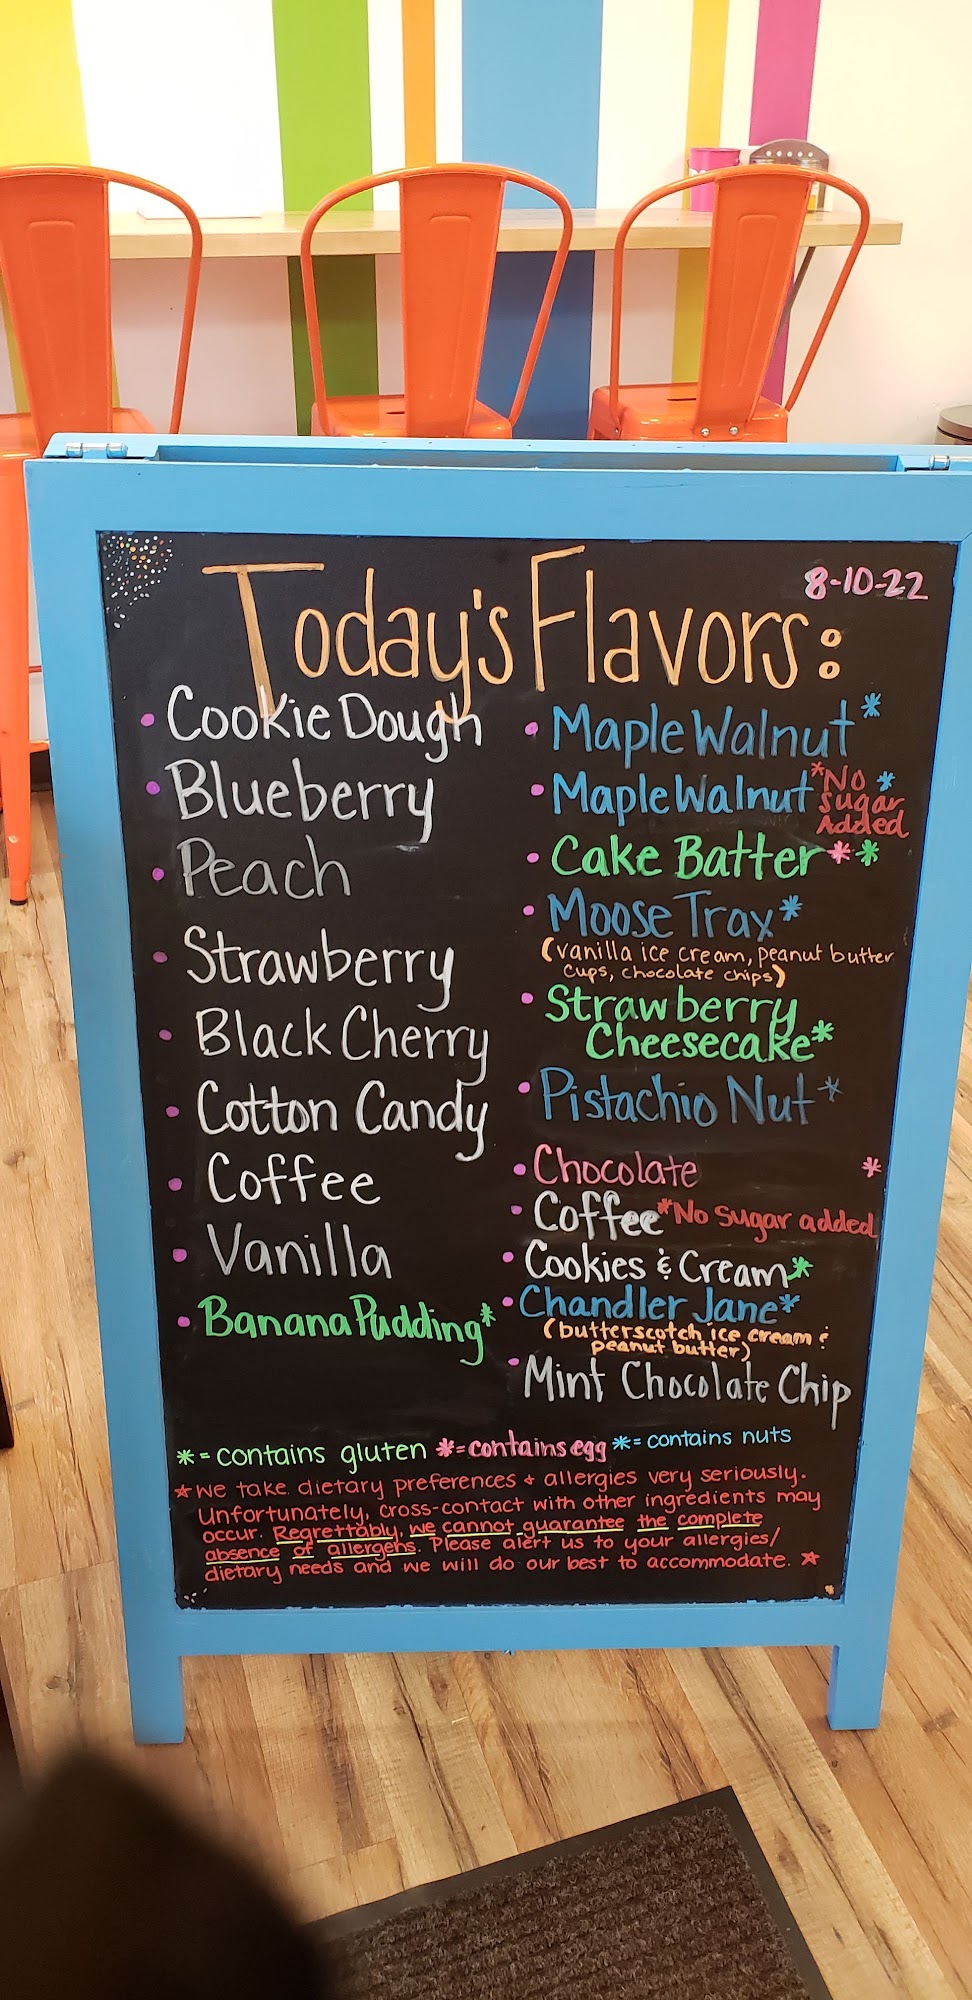 Today's Flavors:
8-10-22
• Cookie Dough
• Blueberry
• Peach
• Strawberry
• Black Cherry
• Cotton Candy
• Coffee
• Vanilla
• Banana Pudding*
• Maple Walnut*
• Maple Walnut *No Sugar Added *
• Cake Batter**
• Moose Trax*
(vanilla ice cream, peanut butter
cups, chocolate chips)
• Strawberry
Cheesecake*
• Pistachio Nut*
• Chocolate *
• Coffee *No Sugar added
• Cookies & Cream*
• Chandler Jane*
(butterscotch ice cream &
peanut butter)
• Mint Chocolate Chip
*= contains gluten *=contains egg *= contains nuts
★ We take dietary preferences & allergies very seriously.
Unfortunately, cross-contact with other ingredients may
occur. Regrettably, we cannot guarantee the complete
absence of allergens. Please alert us to your allergies/
dietary needs and we will do our best to accommodate. ★